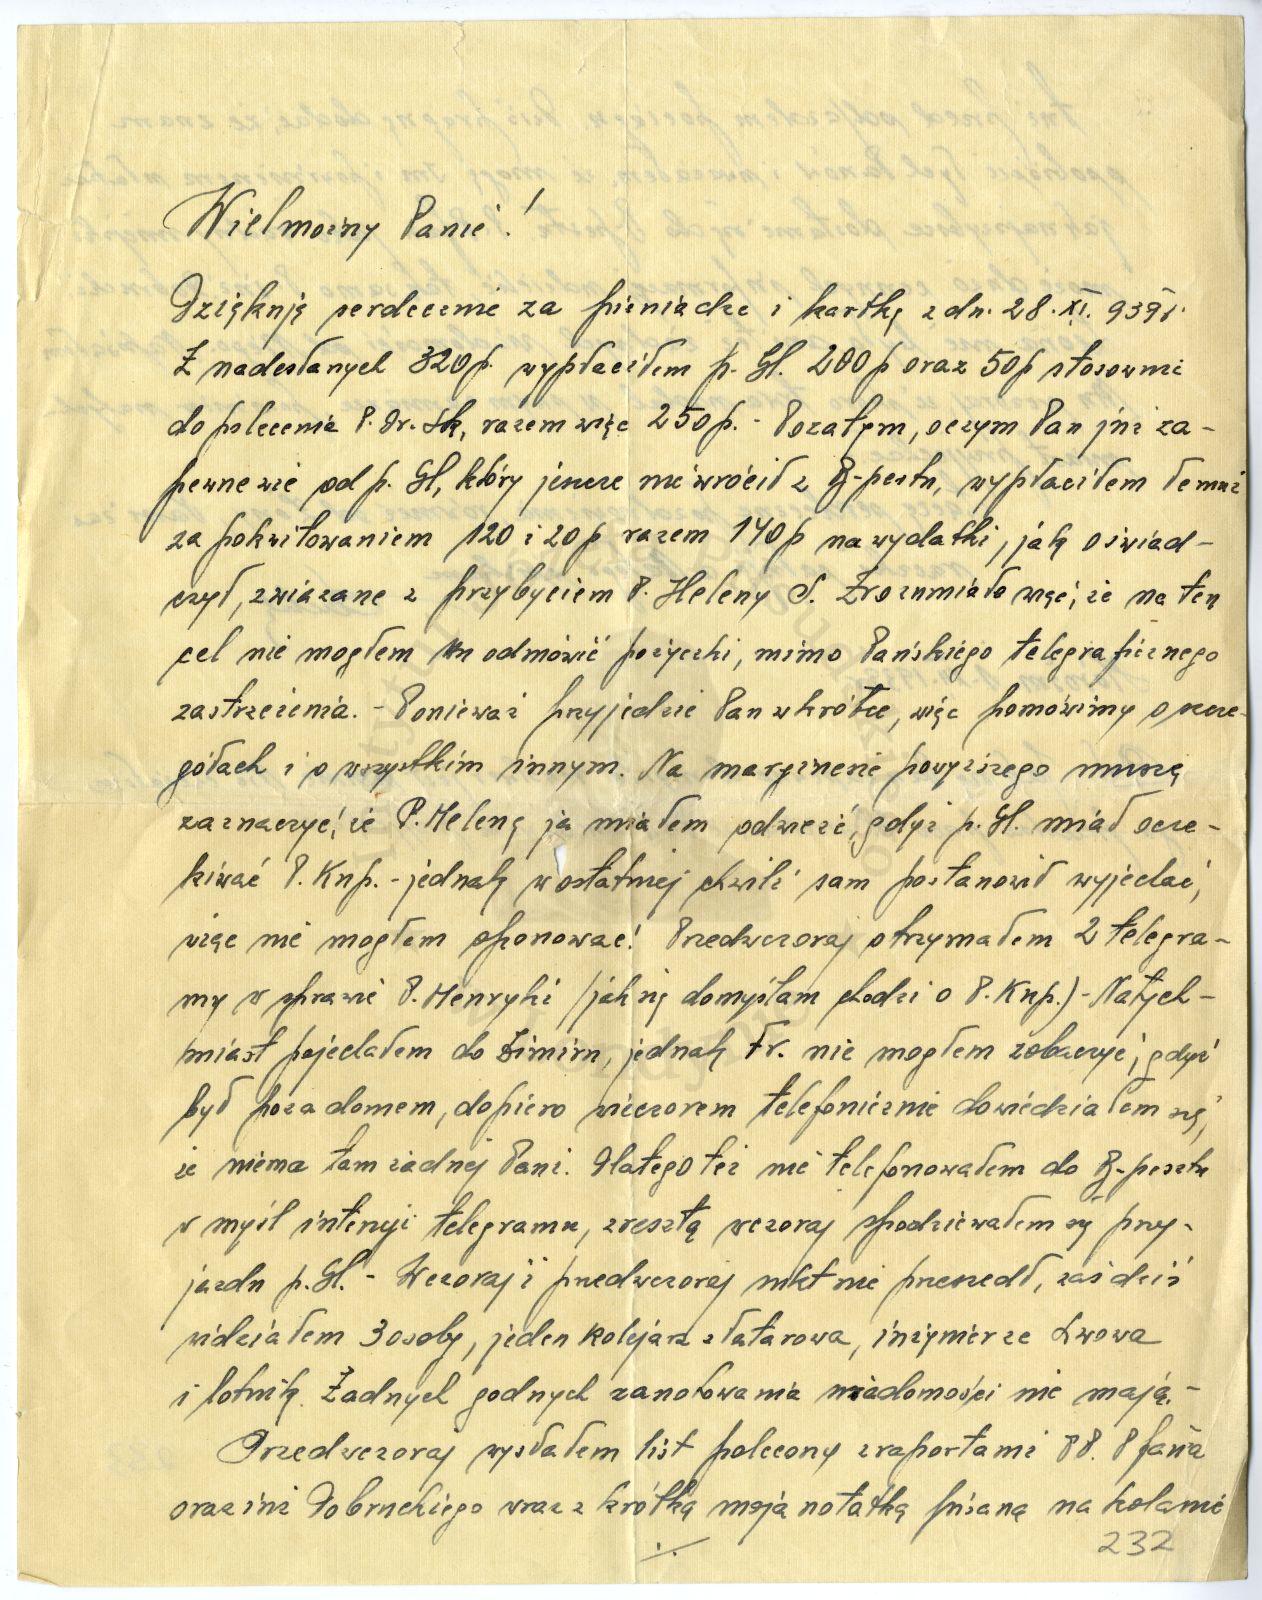 Wielmożny Panie!
Dziękuję serdecznie za pieniądze i kartkę z dn. 28.XI. 939 r.
Z nadesłanych 320 p. wypłaciłem p. Gl. 200 p oraz 50 p stosownie
do polecenia P. Dr. Sk, razem więc 250 p. - Pozatym, o czym Pan już za-
pewne wie od p. Gl, który jeszcze nie wrócił z B-pesztu, wypłaciłem temuż
za pokwitowaniem 120 i 20 p razem 140 p na wydatki, jak oświad-
czył, związane z przybyciem P. Heleny S. Zrozumiało więc, że na ten
cel nie mogłem mu odmówić pożyczki, mimo Pańskiego telegraficznego
zastrzeżenia. - Ponieważ przyjedzie Pan wkrótce, więc pomówimy o szcze-
gółach i o wszystkim innym. Na marginesie powyższego muszę
zaznaczyć, że P. Helenę ja miałem odwieźć, gdyż p. Gl. miał ocze-
kiwać P. Knp. - jednak w ostatniej chwili sam postanowił wyjechać,
więc nie mogłem oponować! Przedwczoraj otrzymałem 2 telegra-
my w sprawie P. Henryki (jak się domyślam chodzi o P. Knp.) - Natych-
miast pojechałem do Zimirn, jednak Fr. nie mogłem zobaczyć, gdyż
był poza domem, dopiero wieczorem telefonicznie dowiedziałem się,
że niema tam żadnej Pani. Dlatego też nie telefonowałem do B-pesztu
w myśl intencji telegramu, zresztą wczoraj spodziewałem się przy-
jazdu p. Gl. - Wczoraj i przedwczoraj nikt nie przeszedł, zaś dziś
widziałem 3 osoby, jeden kolejarz z Tatarowa, inżynier ze Lwowa
i lotnik. Żadnych godnych zanotowania wiadomości nie mają. -
Przedwczoraj wysłałem list polecony z raportami PP.
oraz inż Dobruckiego wraz z krótką moją notatką pisaną na kolanie
./.
232